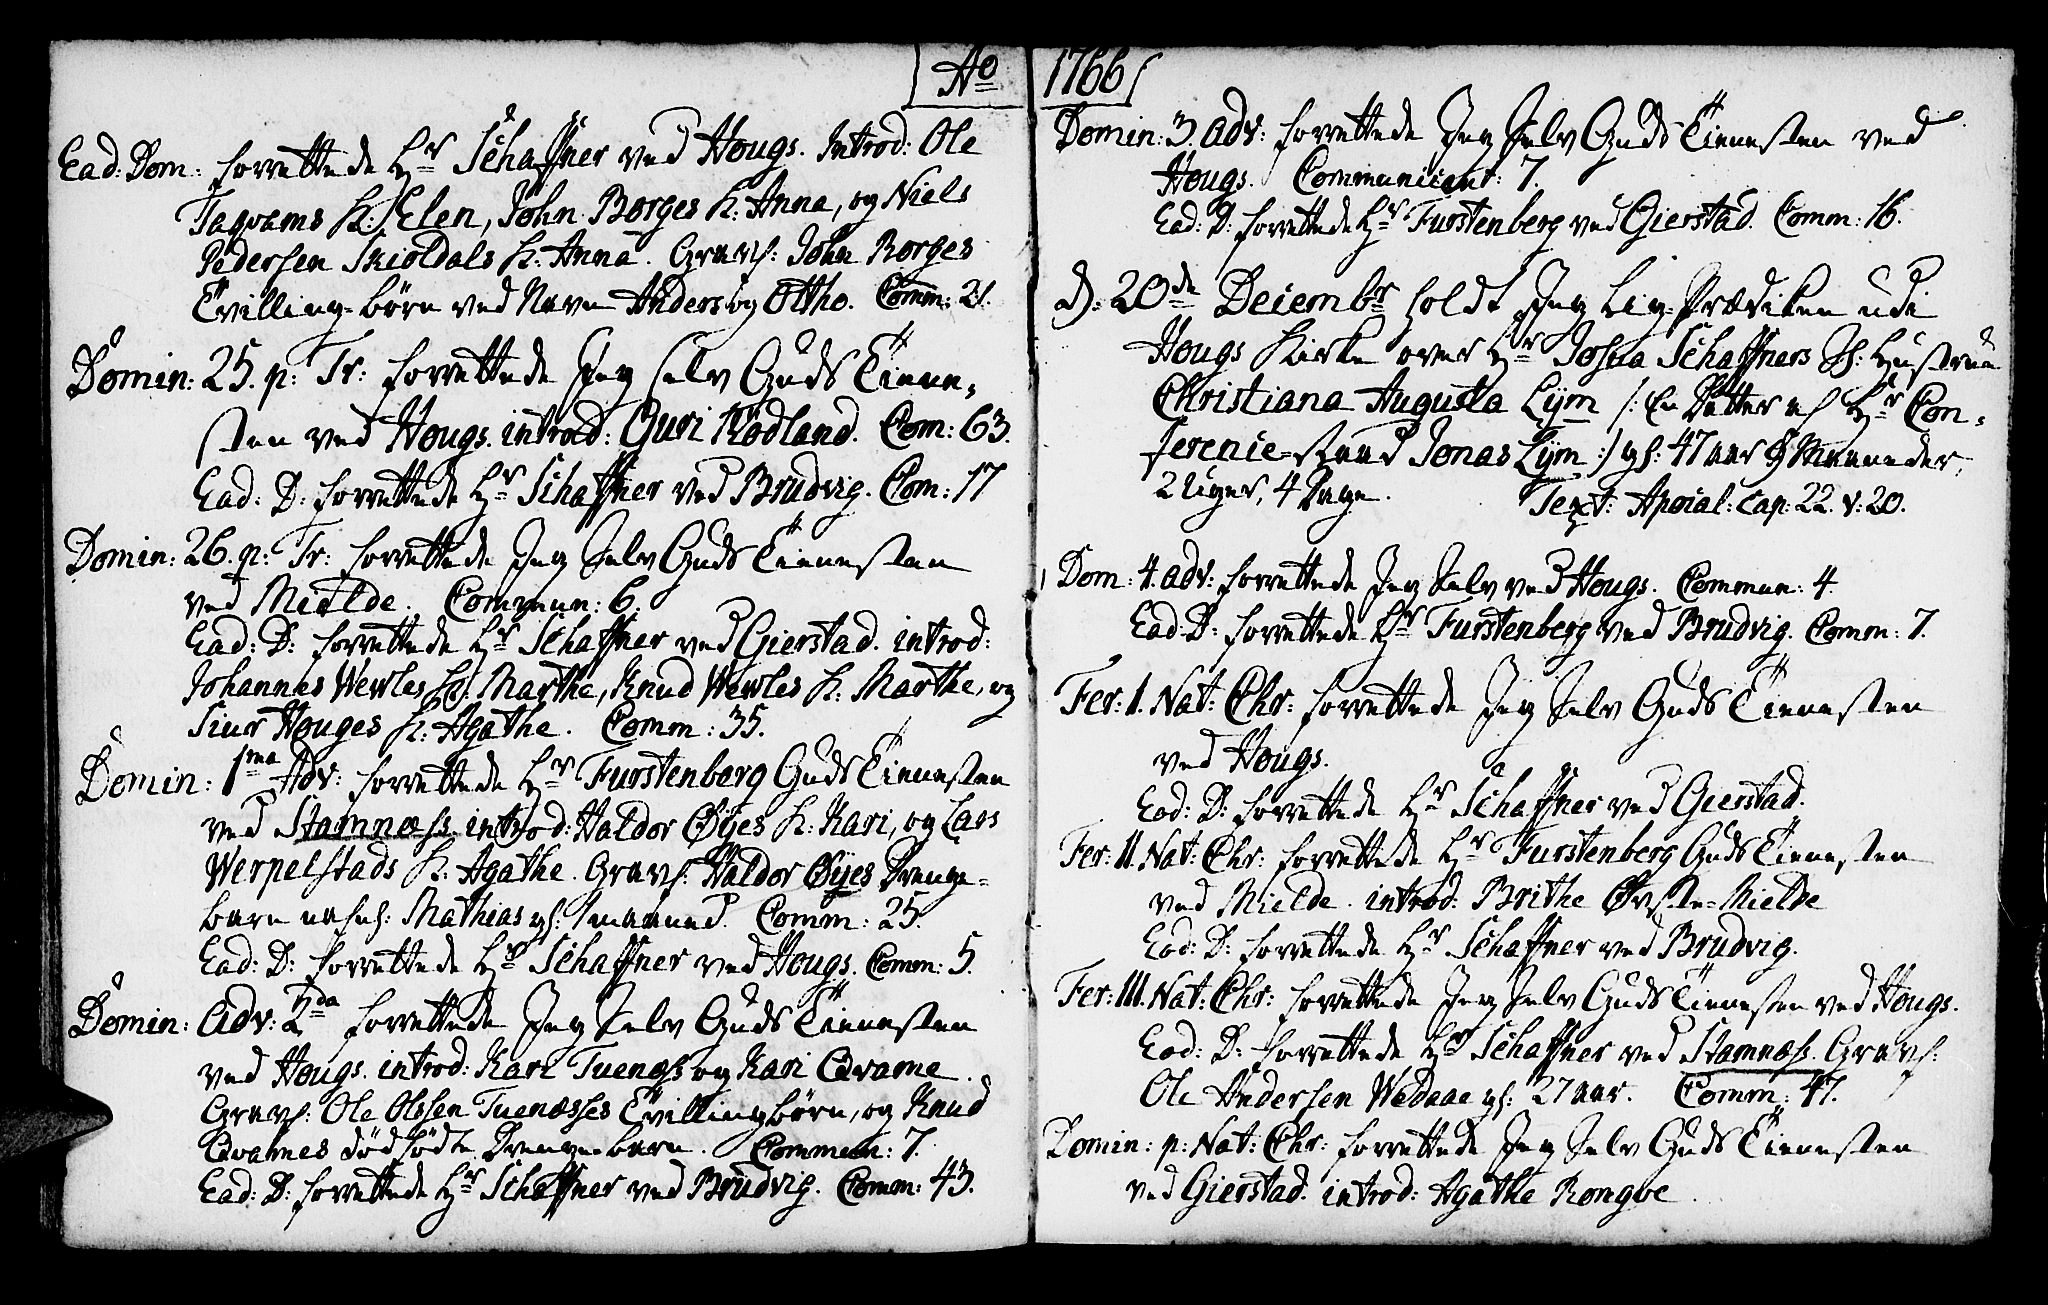 Ao 1766
Ead: Dom: forrettede Hr Schaffner ved Hougs. Introd: Ole
Taqvams K: Elen, John Borges K: Anna, og Niels
Pedersen Skioldals K: Anna. Gravf: John Borges
Tvilling-børn ved Navn Anders og Ottho. Comm: 21.
Domin: 25. p: Tr: forrettede Jeg selv Guds Tiene-
sten ved Hougs. introd: Guri Rödland. Com: 63.
Ead: D: forrettede Hr Schaffner ved Brudvig. Com: 17
Domin: 26. p: Tr: forrettede Jeg Selv Guds Tienesten
ved Mielde. Commun: 6.
Ead: D: forrettede Hr Schaffner ved Gierstad. introd:
Johannes Wewles K: Marthe, Knud Wewles K: Marthe, og
Siur Houges K: Agathe. Comm: 35.
Domin: 1ma Adv: forrettede Hr Furstenberg Guds Tienesten
ved Stamnæs. introd: Haldor Øÿes K: Kari, og Lars
Werpelstads K: Agathe. Gravf: Haldor Øÿes Drenge-
barn nafnl: Mathias gl: 1 maaned. Comm: 25.
Ead: D: forrettede Hr Schaffner ved Hougs. Comm: 5.
Domin: Adv: 2da forrettede Jeg Selv Guds Tienesten
ved Hougs. introd: Kari Tuenæs og Kari Qvame.
Gravf: Ole Olssen Tuenæsses Tvillingbørn, og Knud
Qvames dödfödte Drenge-barn. Commun: 7.
Ead: D: forrettede Hr Schaffner ved Brudvig. Comm: 43.
Domin: 3. Adv: forrettede Jeg Selv Guds Tienesten ved
Hougs. Communicant: 7.
Ead: D: forrettede Hr Furstenberg ved Gierstad. Comm: 16.
D: 20de Decembr holdt Jeg Lig-Prædiken udi
Hougs Kirke over Hr Josua Schaffners Sl: Hustrue
Christiana Augusta Lÿm /: En Datter af Hr Con-
ferenie-Raad Jonas Lÿm :/ gl: 47 aar 9 Maaneder,
2 Uger, 4 Dage. Text: Apocal: cap: 22. v: 20.
Dom: 4. Adv: forrettede Jeg Selv ved Hougs. Commun: 4.
Ead: D: forrettede Hr Furstenberg ved Brudvig. Comm: 7.
Fer: I. Nat: Chr: forrettede Jeg Selv Guds Tienesten
ved Hougs.
Ead: D: forrettede Hr Schaffner ved Gierstad.
Fer: II. Nat: Chr: forrettede Hr Furstenberg Guds Tienesten
ved Mielde. introd: Brithe Øvste-Mielde
Ead: D: forrettede Hr Schaffner ved Brudvig.
Fer: III. Nat: Chr: forrettede Jeg Selv Guds Tienesten ved Hougs.
Ead: D: forrettede Hr Schaffner ved Stamnæs. Gravf:
Ole Andersen Wedaae gl: 27 aar. Comm: 47.
Domin: p: Nat: Chr: forrettede Jeg Selv Guds Tienesten
ved Gierstad. introd: Agatha Rongve